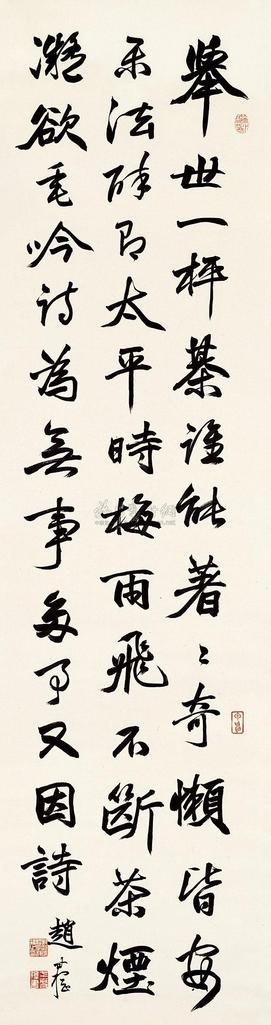 舉世一枰棊誰能著々奇懶皆安
樂法醉即太平時梅雨飛不斷茶煙
凝欲垂吟詩為無事多事又因詩
趙